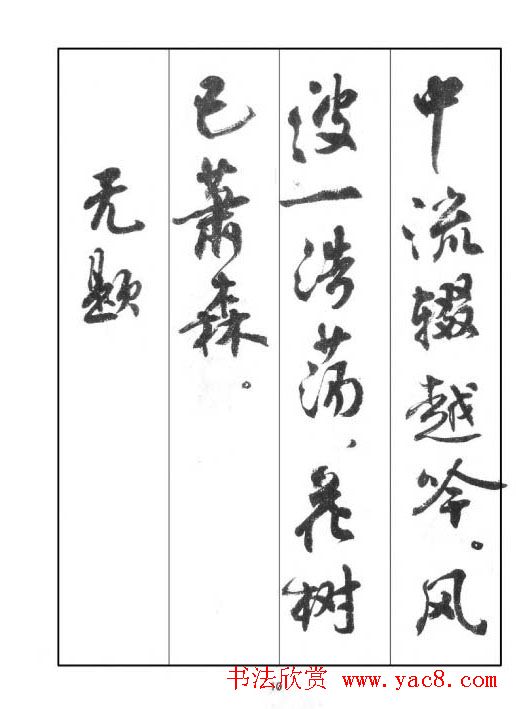 中流辍越吟。风
波一浩荡，花树
已萧森。
无题
10
书法欣赏 www.yac8.com